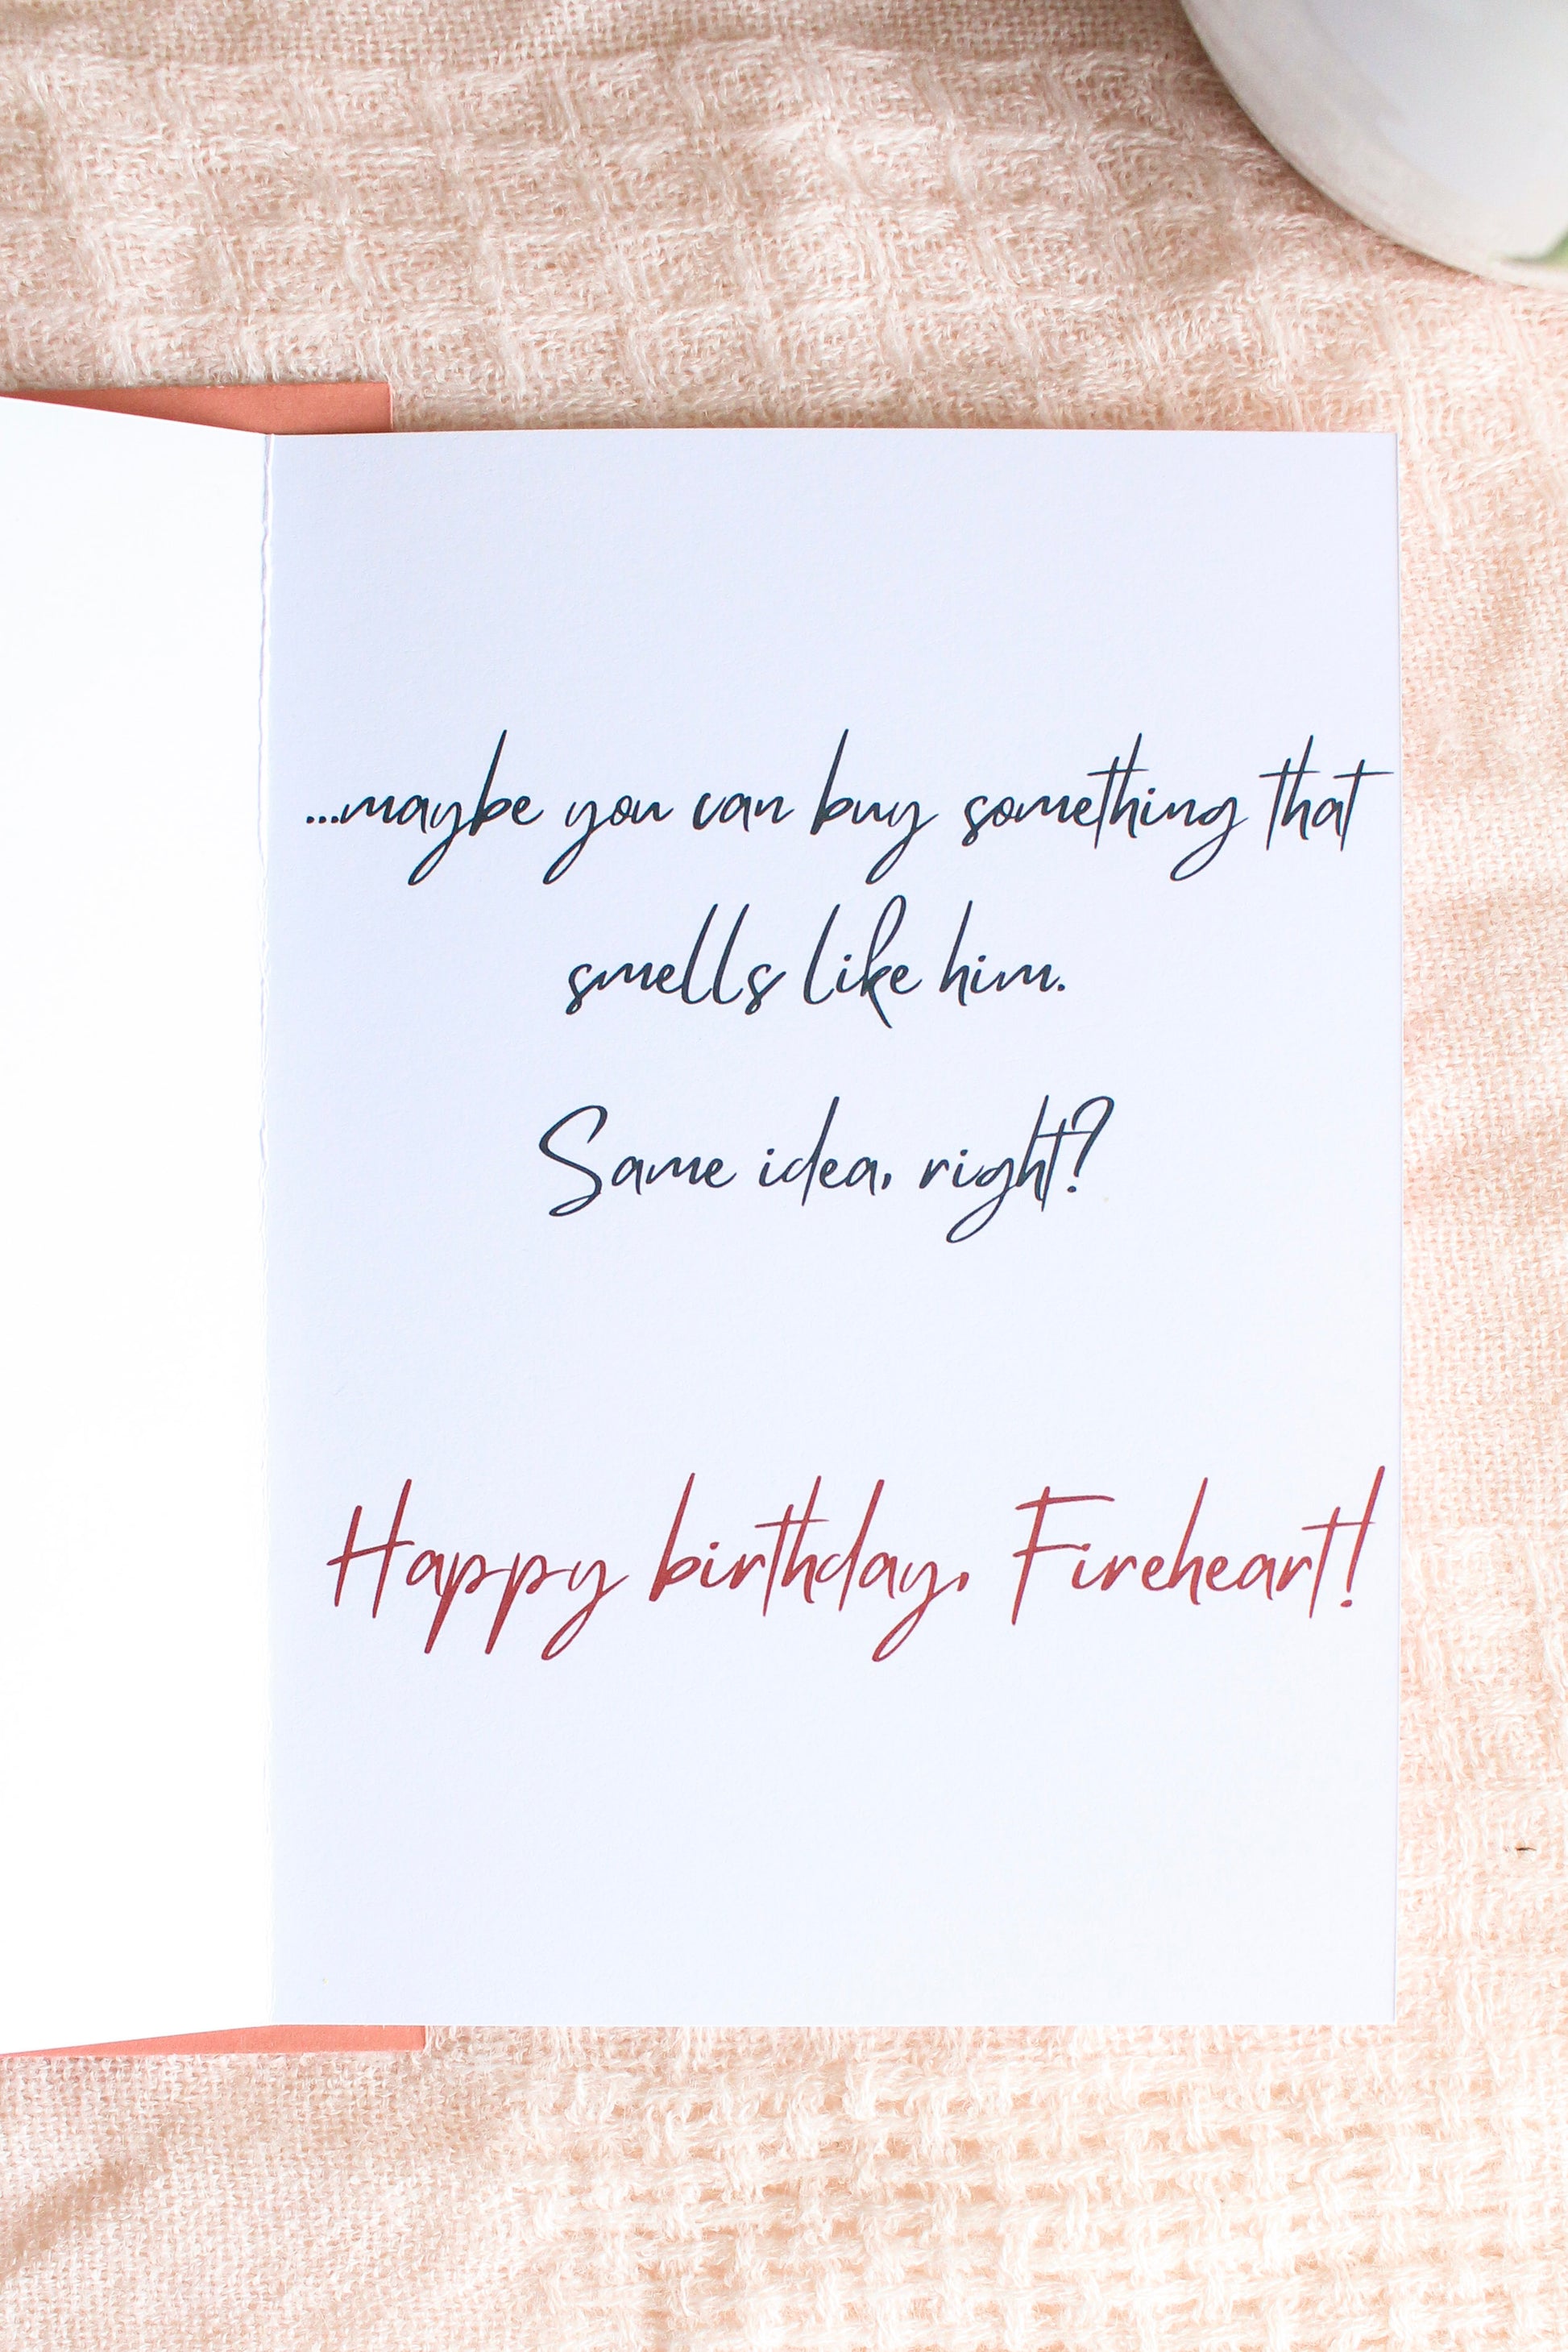 ...maybe you can buy something that
smells like him.
Same idea, right?
Happy birthday, Fireheart!